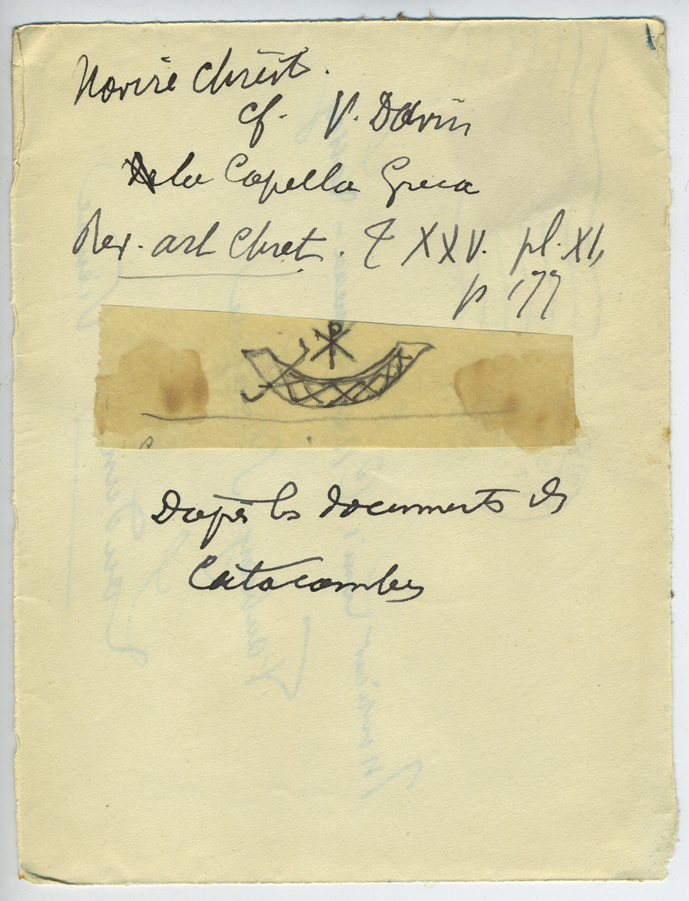 Navire Chrét.
cf. V. Davin
la Capella Greca
Rev. art Chret. t XXV. pl. XI,
p 177
D'après les documents des
Catacombes